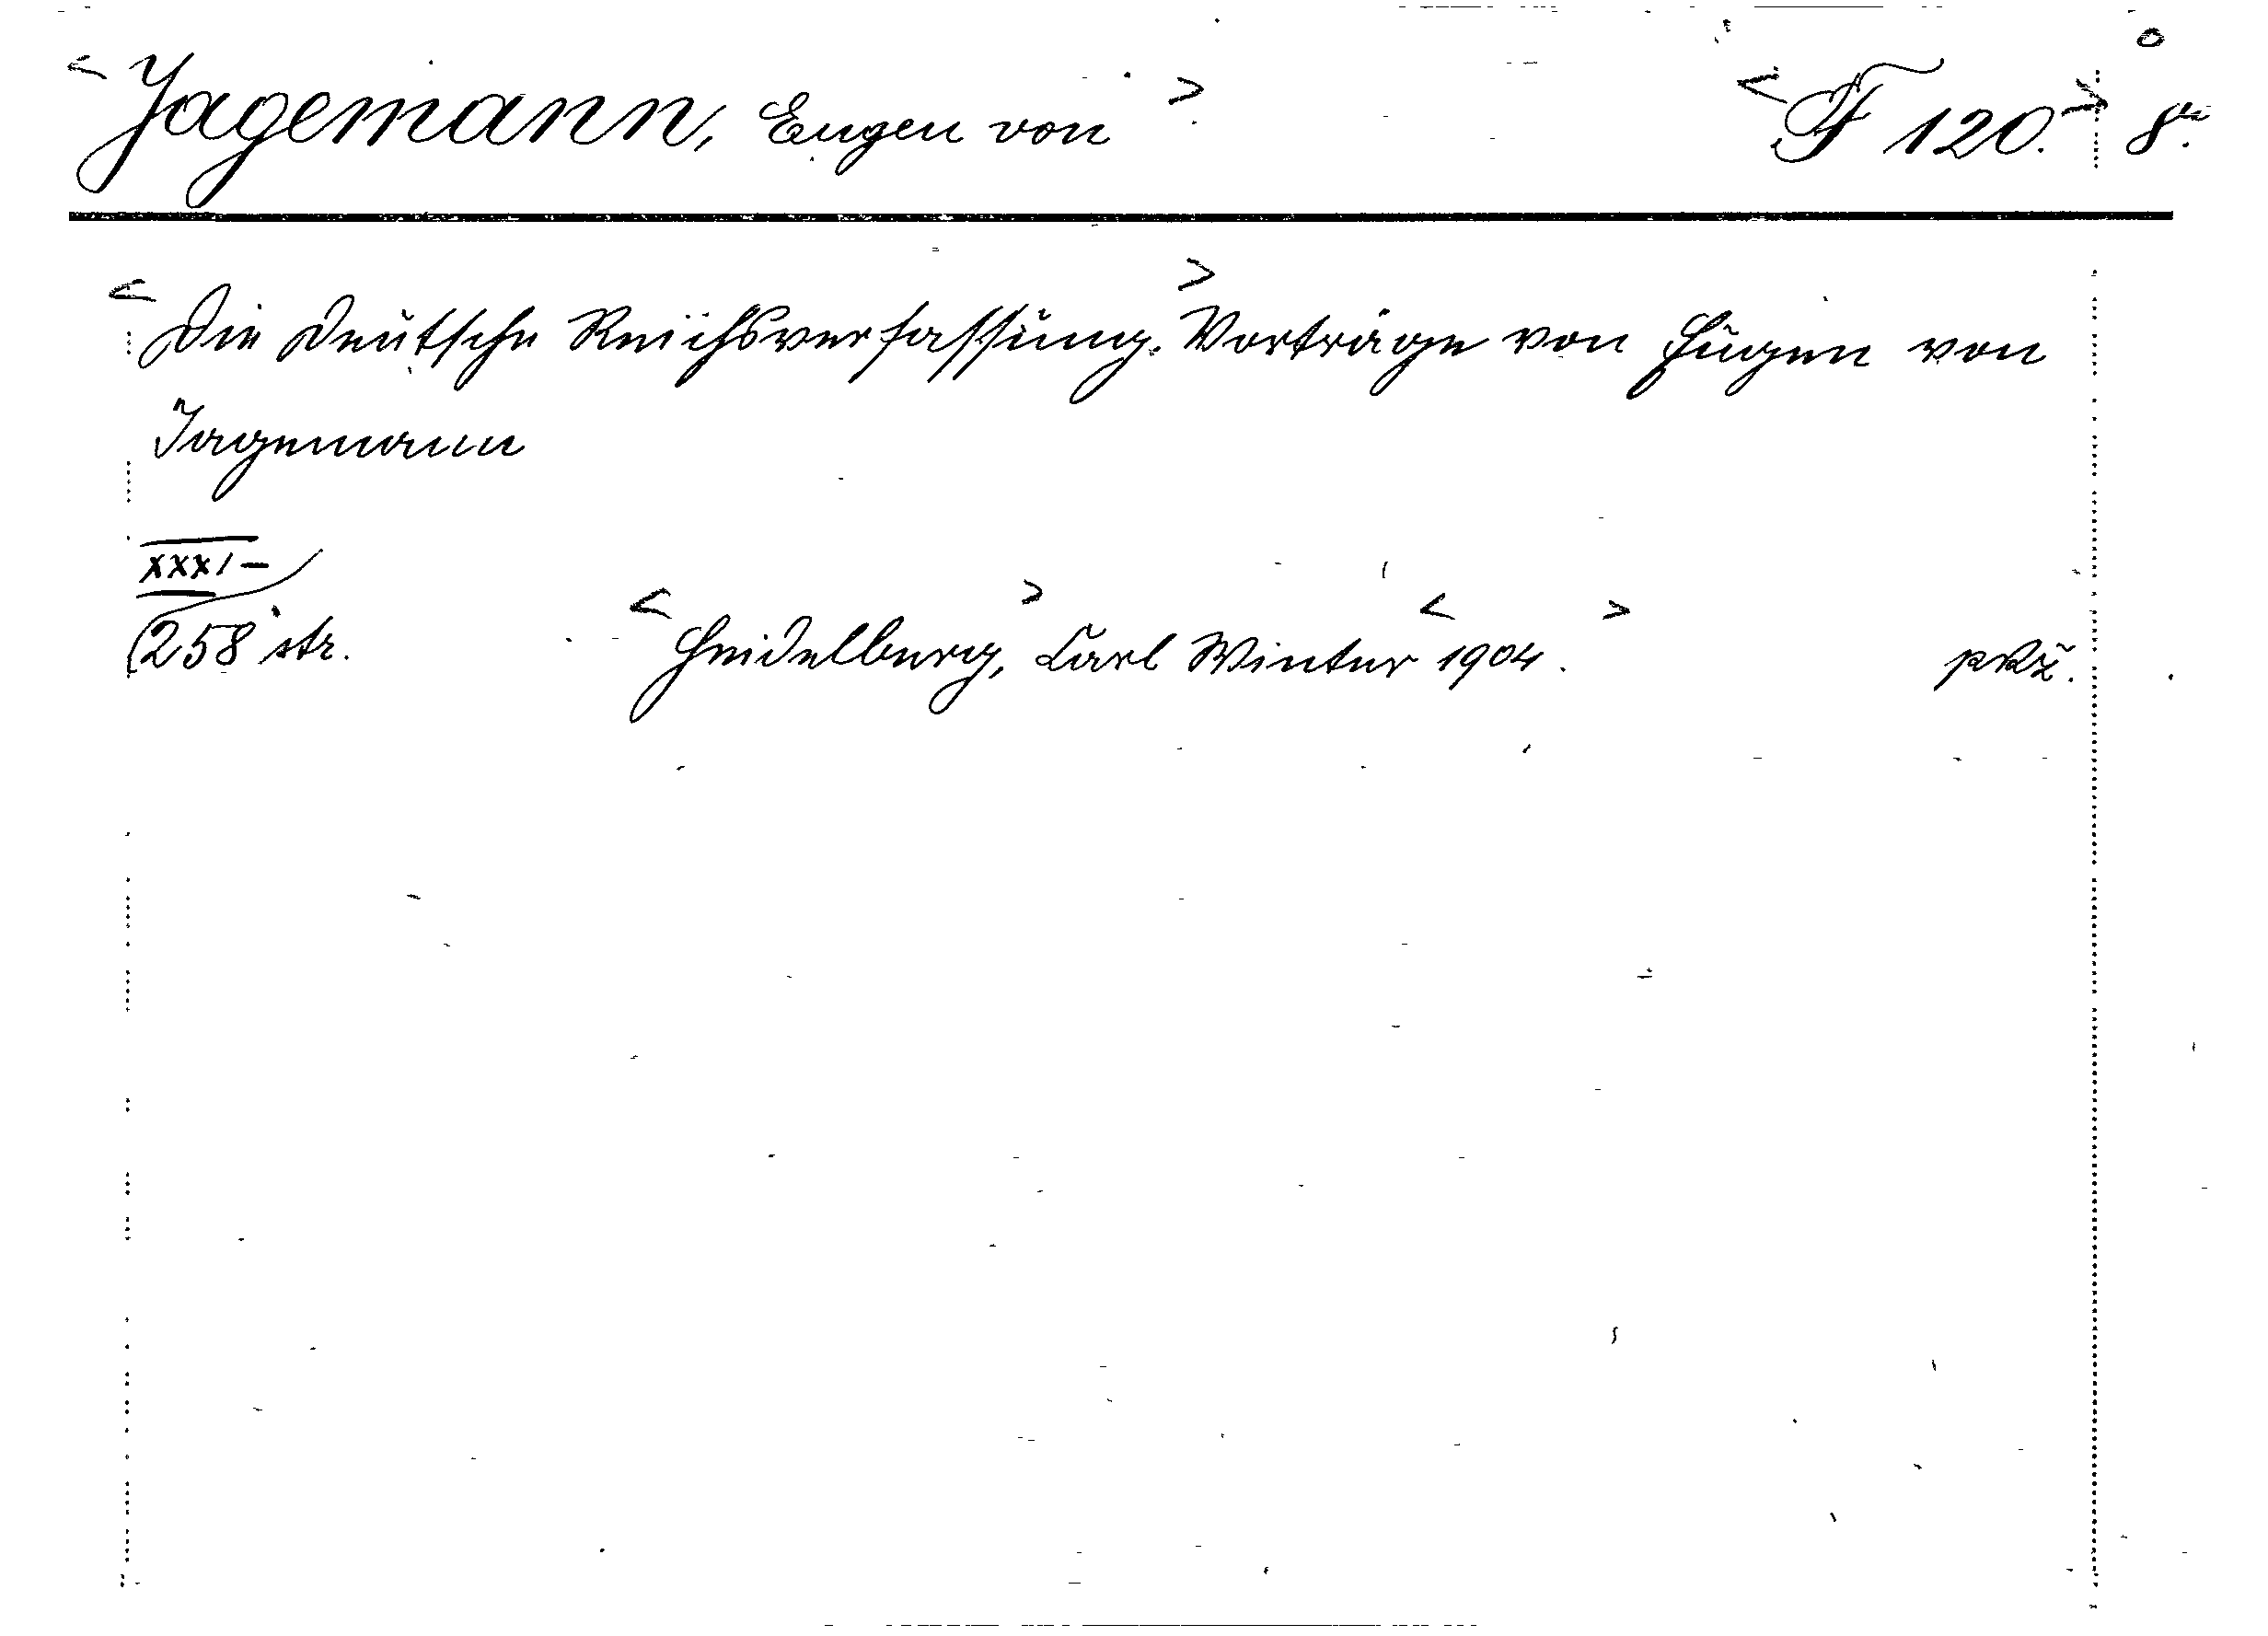 <Jagemann, Eugen von> <F 120.> 8°
<Die Deutsche Reichsverfassung.> Vorträge von Eugen von
Jagemann
XXXI-
258 str. <Heidelberg,> Carl Winter <1904.>